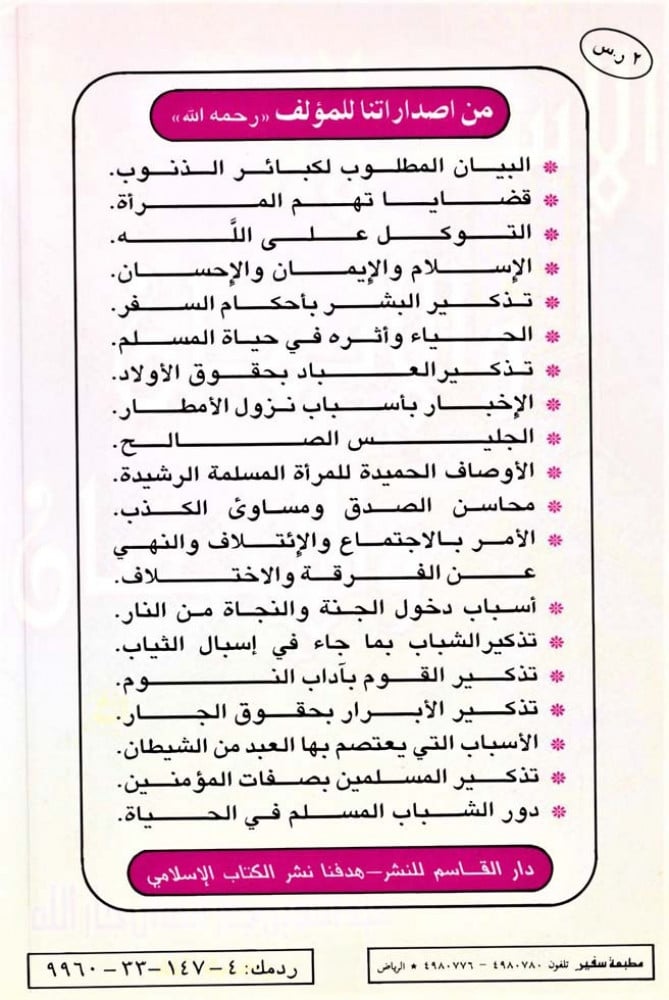 ٢ ر.س
من اصداراتنا للمؤلف «رحمه الله»
* البيان المطلوب لكبائر الذنوب.
* قضايا تهم المرأة.
* التوكل على اللَّه.
* الإسلام والإيمان والإحسان.
* تذكير البشر بأحكام السفر.
* الحياء وأثره في حياة المسلم.
* تذكير العباد بحقوق الأولاد.
* الإخبار بأسباب نزول الأمطار.
* الجليس الصالح.
* الأوصاف الحميدة للمرأة المسلمة الرشيدة.
* محاسن الصدق ومساوئ الكذب.
* الأمر بالاجتماع والإئتلاف والنهي
عن الفرقة والاختلاف.
* أسباب دخول الجنة والنجاة من النار.
* تذكير الشباب بما جاء في إسبال الثياب.
* تذكير القوم بآداب النوم.
* تذكير الأبرار بحقوق الجار.
* الأسباب التي يعتصم بها العبد من الشيطان.
* تذكير المسلمين بصفات المؤمنين.
* دور الشباب المسلم في الحياة.
دار القاسم للنشر–هدفنا نشر الكتاب الإسلامي
مطبعة سفير تلفون ٤٩٨٠٧٨٠ – ٤٩٨٠٧٧٦ * الرياض
ردمك: ٤-١٤٧-٣٣-٩٩٦٠